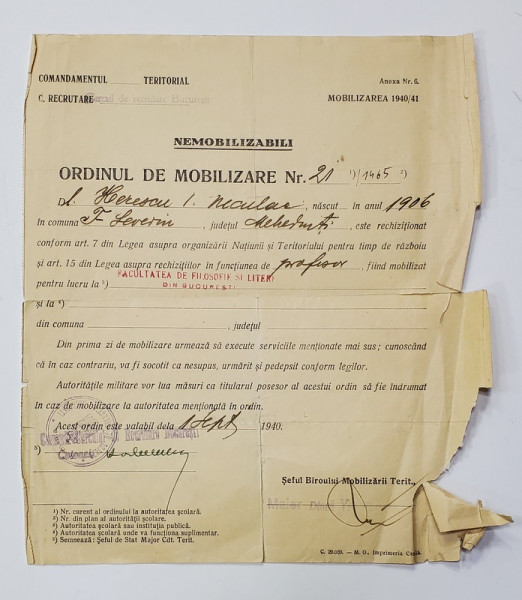 COMANDAMENTUL TERITORIAL
Anexa Nr. 6.
C. RECRUTARE Cercul de recrutare Bucureşti
MOBILIZAREA 1940/41
NEMOBILIZABILI
ORDINUL DE MOBILIZARE Nr. 21 ¹)/1465 ²)
D. Herescu I. Nicolae, născut în anul 1906
în comuna T. Severin, judeţul Mehedinţi, este rechiziţionat
conform art. 7 din Legea asupra organizării Naţiunii şi Teritoriului pentru timp de războiu
şi art. 15 din Legea asupra rechiziţiilor în funcţiunea de profesor, fiind mobilizat
pentru lucru la ³) FACULTATEA DE FILOSOFIE ŞI LITERE
DIN BUCUREŞTI
şi la ⁴)
din comuna , judeţul
Din prima zi de mobilizare urmează să execute serviciile menţionate mai sus; cunoscând
că în caz contrariu, va fi socotit ca nesupus, urmărit şi pedepsit conform legilor.
Autorităţile militare vor lua măsuri ca titularul posesor al acestui ordin să fie îndrumat
în caz de mobilizare la autoritatea menţionată în ordin.
Acest ordin este valabil dela 1 Sept 1940.
⁵)
Colonel
Şeful Biroului Mobilizării Terit.,
Maior
¹) Nr. curent al ordinului la autoritatea şcolară.
²) Nr. din plan al autorităţii şcolare.
³) Autoritatea şcolară sau instituţia publică.
⁴) Autoritatea şcolară unde va funcţiona suplimentar.
⁵) Semnează: Şeful de Stat Major Cdt. Terit.
C. 29.039. — M. O., Imprimeria